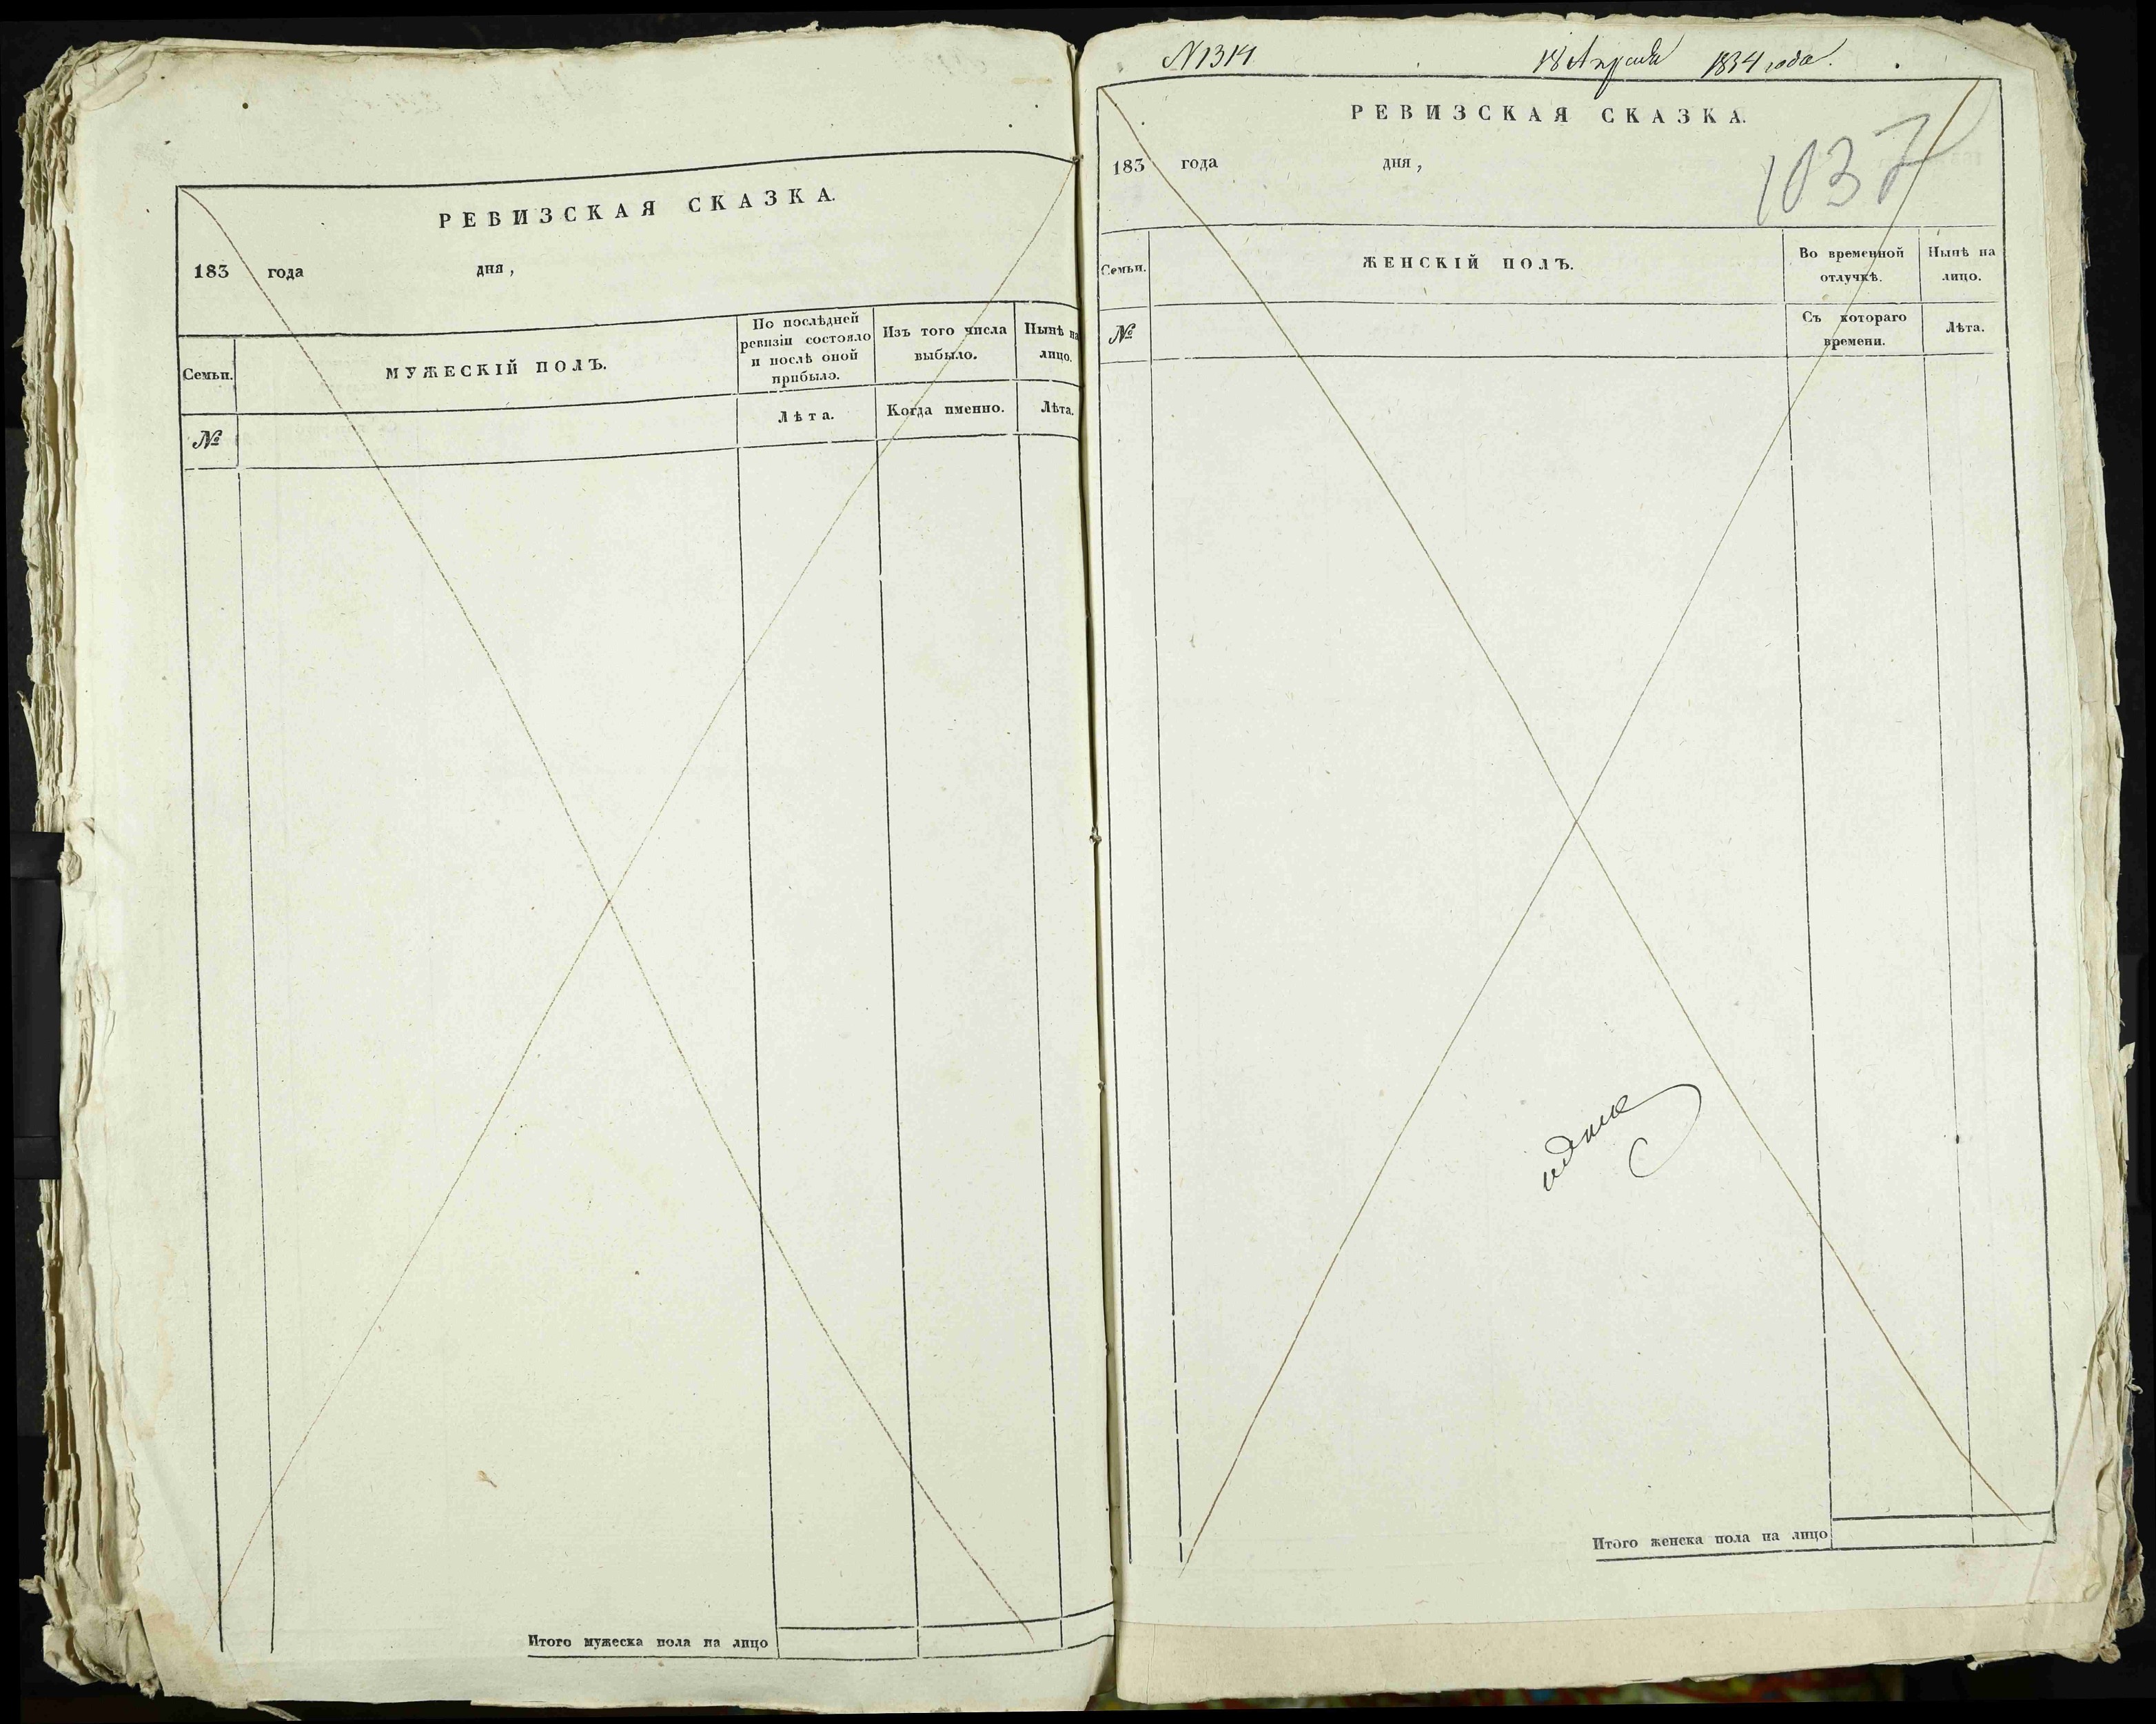 РЕВИЗСКАЯ СКАЗКА.
183 года дня,
Семьи.
МУЖЕСКІЙ ПОЛЪ.
По послѣдней ревизіи состояло и послѣ оной прибыло.
Изъ того числа выбыло.
Нынѣ на лицо.
№
Лѣта.
Когда именно.
Лѣта.
Итого мужеска пола на лицо
18 Апреля 1834 года.
РЕВИЗСКАЯ СКАЗКА.
1037
183 года дня,
Семьи.
ЖЕНСКІЙ ПОЛЪ.
Во временной отлучкѣ.
Нынѣ на лицо.
№
Съ котораго времени.
Лѣта.
Итого женска пола на лицо